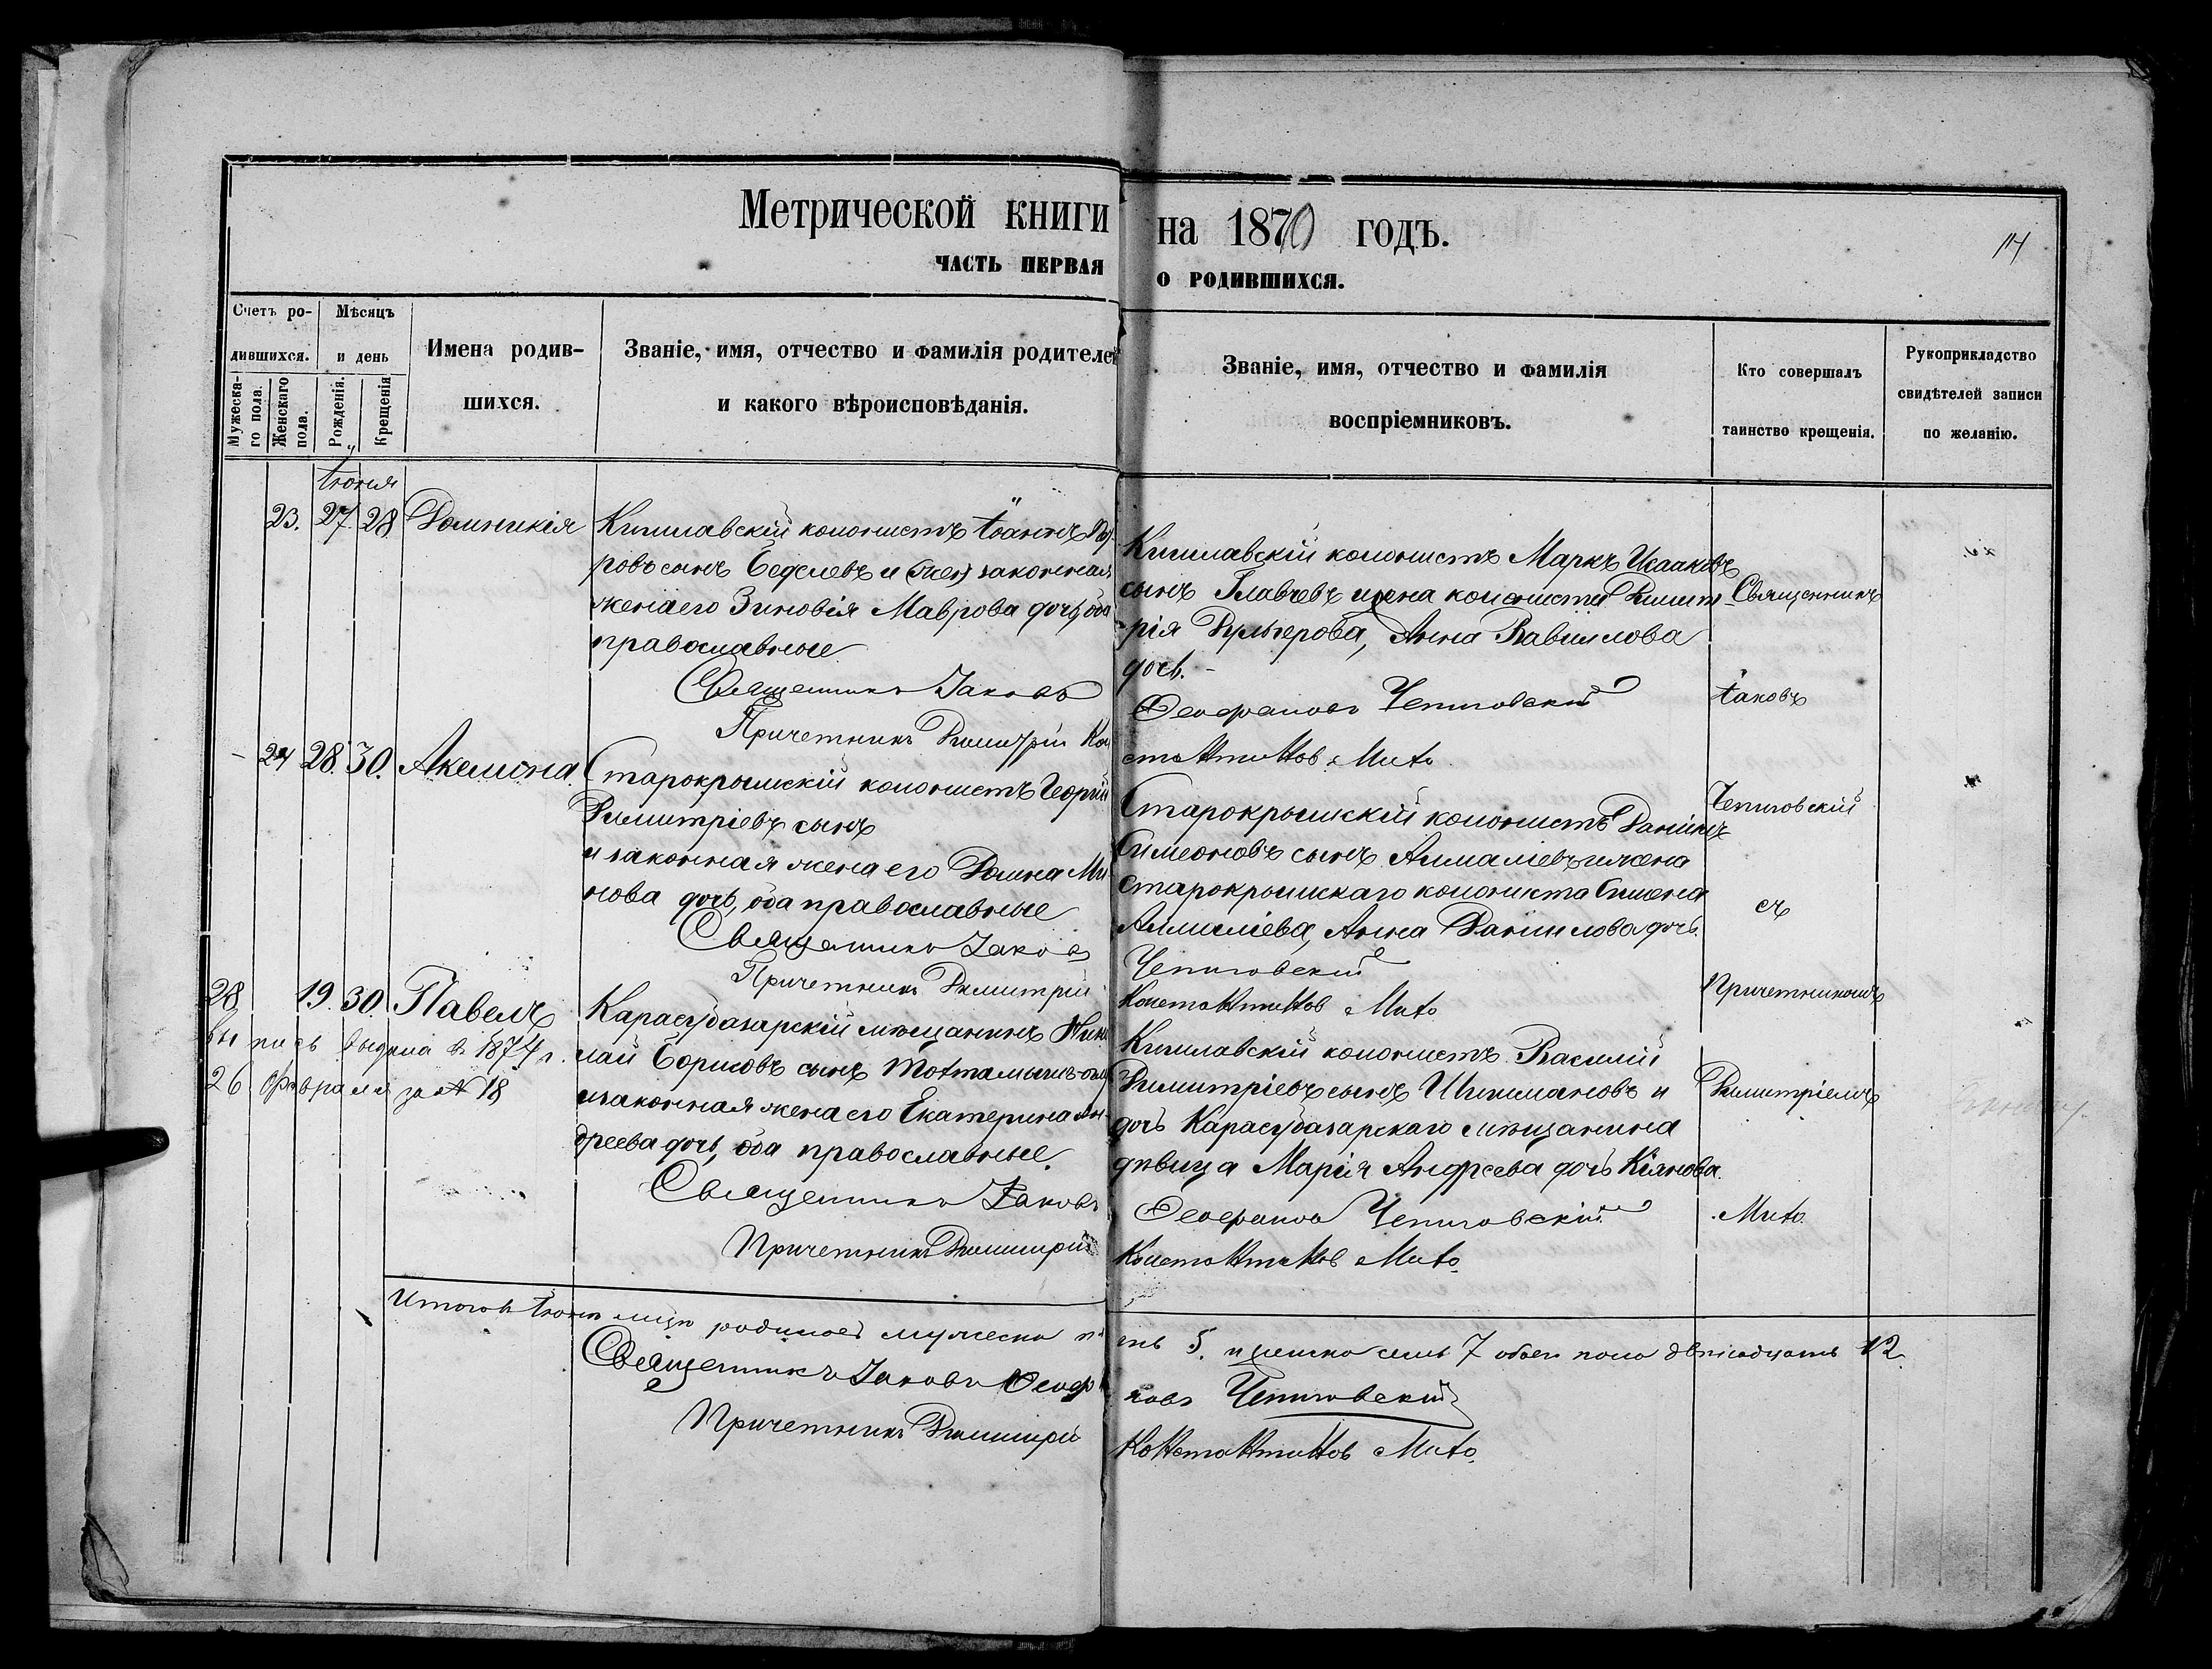 Метрической книги на 1870 годъ.
114
ЧАСТЬ ПЕРВАЯ О РОДИВШИХСЯ.
Счетъ родившихся.
Мужескаго пола.
Женскаго пола.
Мѣсяцъ и день
Рожденія.
Крещенія
Имена родившихся.
Званіе, имя, отчество и фамилія родителей
и какого вѣроисповѣданія.
Званіе, имя, отчество и фамилія
воспріемниковъ.
Кто совершалъ
таинство крещенія.
Рукоприкладство
свидѣтелей записи
по желанію.
Іюня
23. 27. 28. Домникія
Кишлавскій колонистъ Іоаннъ
ровъ сынъ Беделевъ и законная
жена его Зиновія Маврова дочь, оба
православные
Священникъ Іаковъ
Причетникъ Димитрій Кон
Кишлавскій колонистъ Маркъ Исааковъ
сынъ Главчевъ и жена колониста Димит-
рія Булгерова, Анна Вавилова
дочь.-
Феофановъ Чепиговскій
стантиновъ Мито
24 28. 30. Акелина
Старокрымскій колонистъ Георгій
Димитріевъ сынъ
и законная жена его Домна Ми-
нова дочь, оба православные
Священникъ Іаковъ
Причетникъ Димитрій
Старокрымскій колонистъ Даніилъ
Симеоновъ сынъ Алмаліевъ и жена
старокрымскаго колониста Симеона
Алмаліева, Анна Даніилова дочь.
Чепиговскій
Константиновъ Мито
28 19. 30. Павелъ
Выпись выдана въ 1874 г.
26 Февраля за № 18
Карасубазарскій мѣщанинъ Нико
лай Борисовъ сынъ Тохтамышъ-оглу
и законная жена его Екатерина Ан-
дреева дочь, оба православные.
Священникъ Іаковъ
Причетникъ Димитрій
Кишлавскій колонистъ Василій
Димитріевъ сынъ Шишмановъ и
дочь Карасубазарскаго мѣщанина
дѣвица Марія Андреева дочь Кіянова.
Феофановъ Чепиговскій
Константиновъ Мито.
Священникъ
Іаковъ
Чепиговскій
съ
Причетникомъ
Димитріемъ
Мито.
Итого въ Іюнѣ м-цѣ родилось мужеска пять 5. и женска семь 7 обоего пола двѣнадцать 12.
Священникъ Іаковъ Феофановъ Чепиговскій
Причетникъ Димитрій Константиновъ Мито.